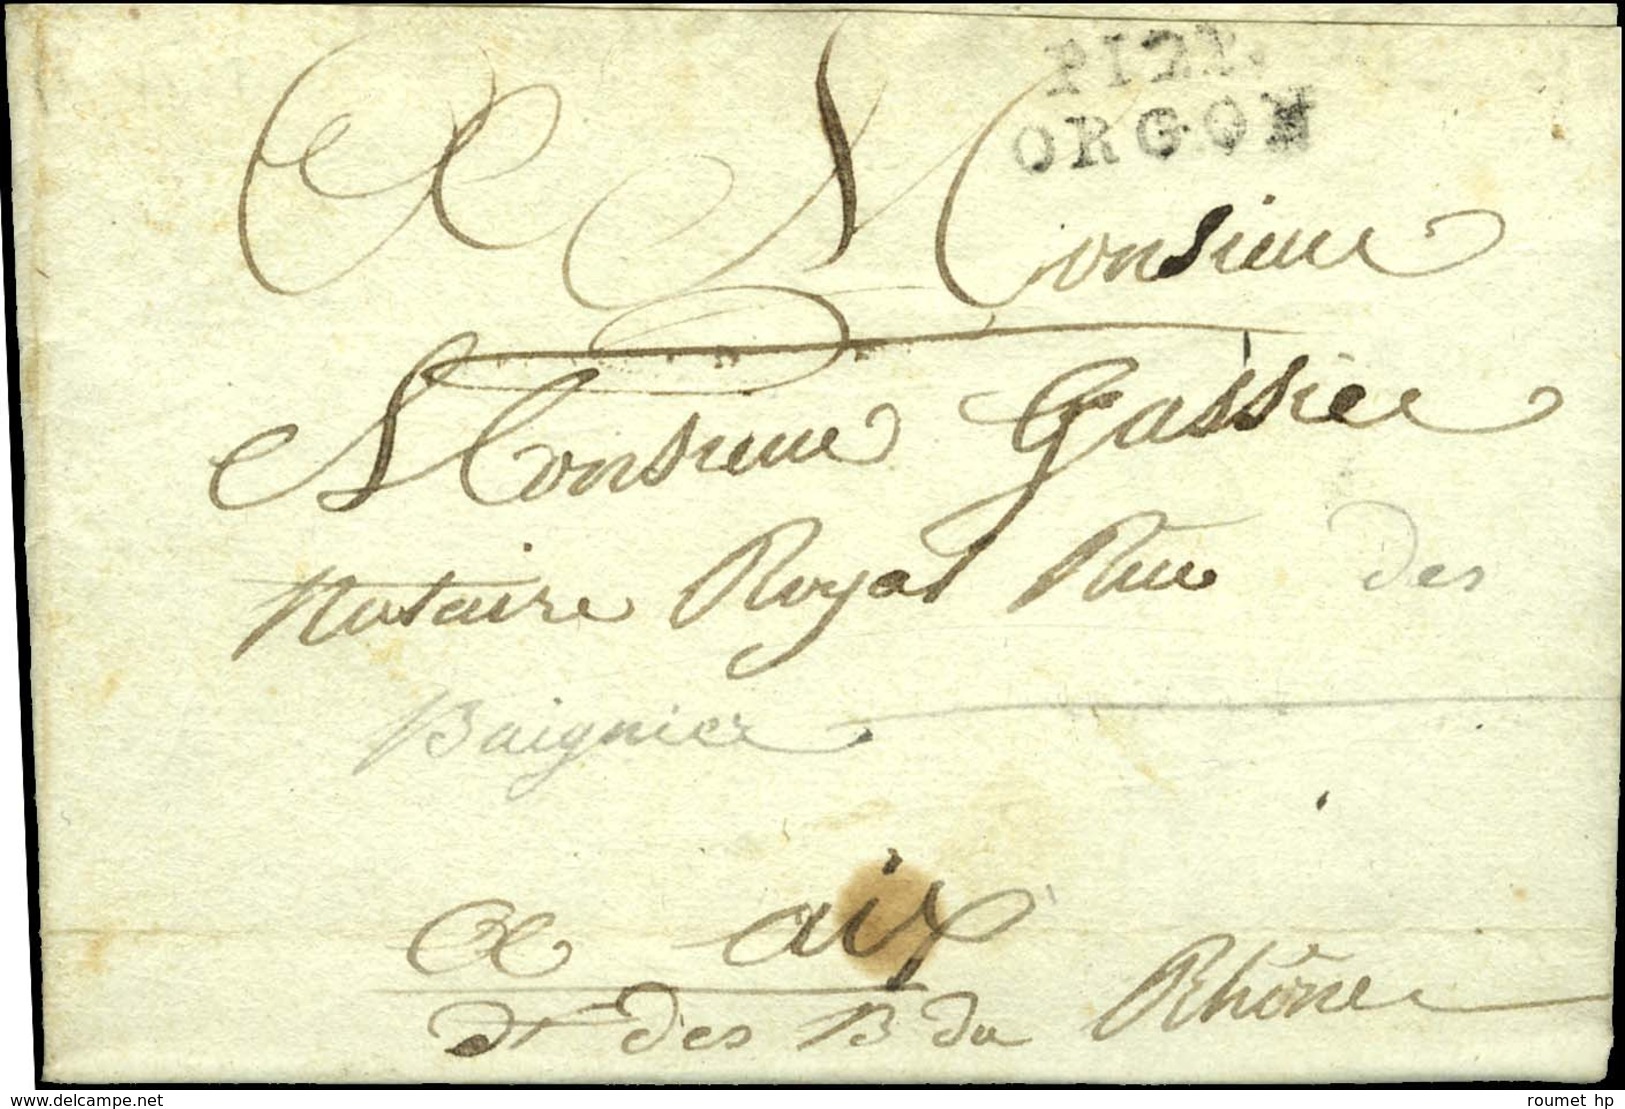 P12P.
ORGON
A Monsieur
Monsieur Gassier
Notaire Royal Rue des
Baignier
A aix
Dt des B du Rhône
www.delcampe.net
roumet hp